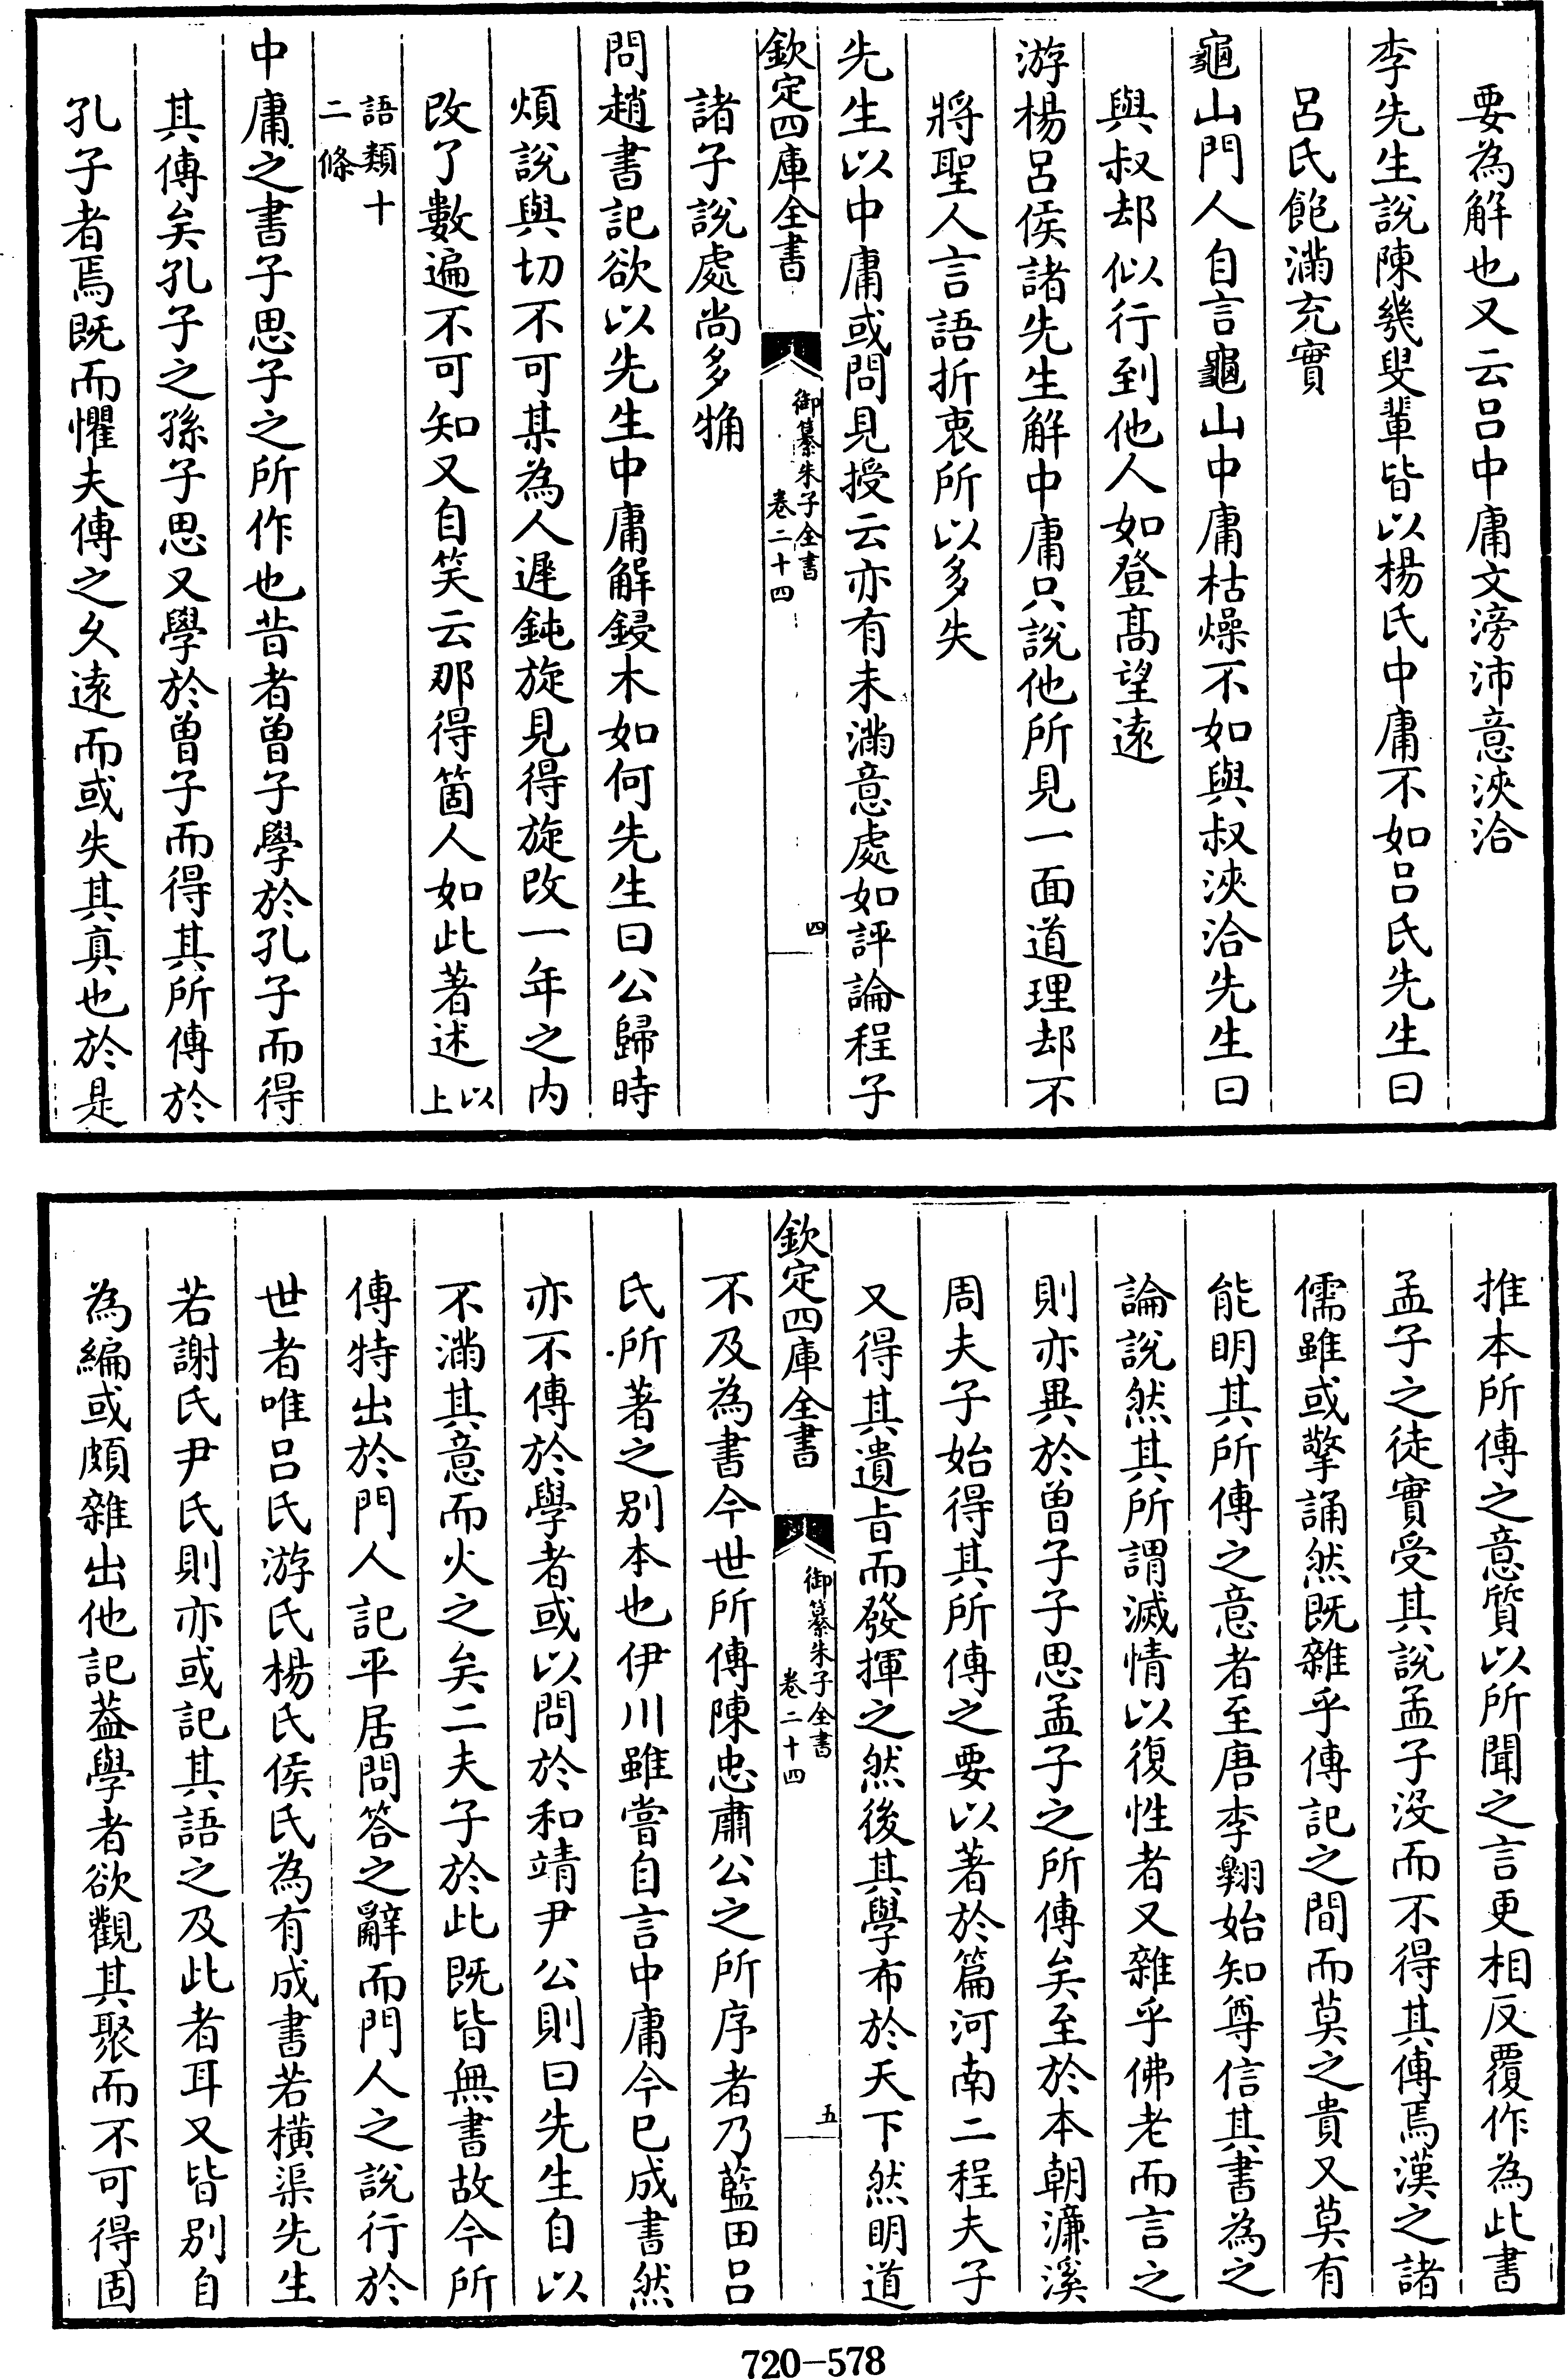 要為解也又云呂中庸文滂沛意浹洽
李先生說陳幾叟輩皆以楊氏中庸不如呂氏先生曰
呂氏飽滿充實
龜山門人自言龜山中庸枯燥不如與叔浹洽先生曰
與叔却似行到他人如登髙望遠
游楊呂侯諸先生解中庸只說他所見一面道理却不
將聖人言語折衷所以多失
先生以中庸或問見授云亦有未滿意處如評論程子
欽定四庫全書
御纂朱子全書
卷二十四
四
諸子說處尚多觕
問趙書記欲以先生中庸解鋟木如何先生曰公歸時
煩說與切不可某為人遲鈍旋見得旋改一年之內
改了數遍不可知又自笑云那得箇人如此著述以上
語類十
二條
中庸之書子思子之所作也昔者曾子學於孔子而得
其傳矣孔子之孫子思又學於曾子而得其所傳於
孔子者焉既而懼夫傳之久遠而或失其真也於是
推本所傳之意質以所聞之言更相反覆作為此書
孟子之徒實受其說孟子沒而不得其傳焉漢之諸
儒雖或擎誦然既雜乎傳記之間而莫之貴又莫有
能明其所傳之意者至唐李翺始知尊信其書為之
論說然其所謂滅情以復性者又雜乎佛老而言之
則亦異於曾子子思孟子之所傳矣至於本朝濂溪
周夫子始得其所傳之要以著於篇河南二程夫子
又得其遺旨而發揮之然後其學布於天下然明道
欽定四庫全書
御纂朱子全書
卷二十四
五
不及為書今世所傳陳忠肅公之所序者乃藍田呂
氏所著之别本也伊川雖嘗自言中庸今已成書然
亦不傳於學者或以問於和靖尹公則曰先生自以
不滿其意而火之矣二夫子於此既皆無書故今所
傳特出於門人記平居問答之辭而門人之說行於
世者唯呂氏游氏楊氏侯氏為有成書若橫渠先生
若謝氏尹氏則亦或記其語之及此者耳又皆別自
為編或頗雜出他記葢學者欲觀其聚而不可得固
720-578